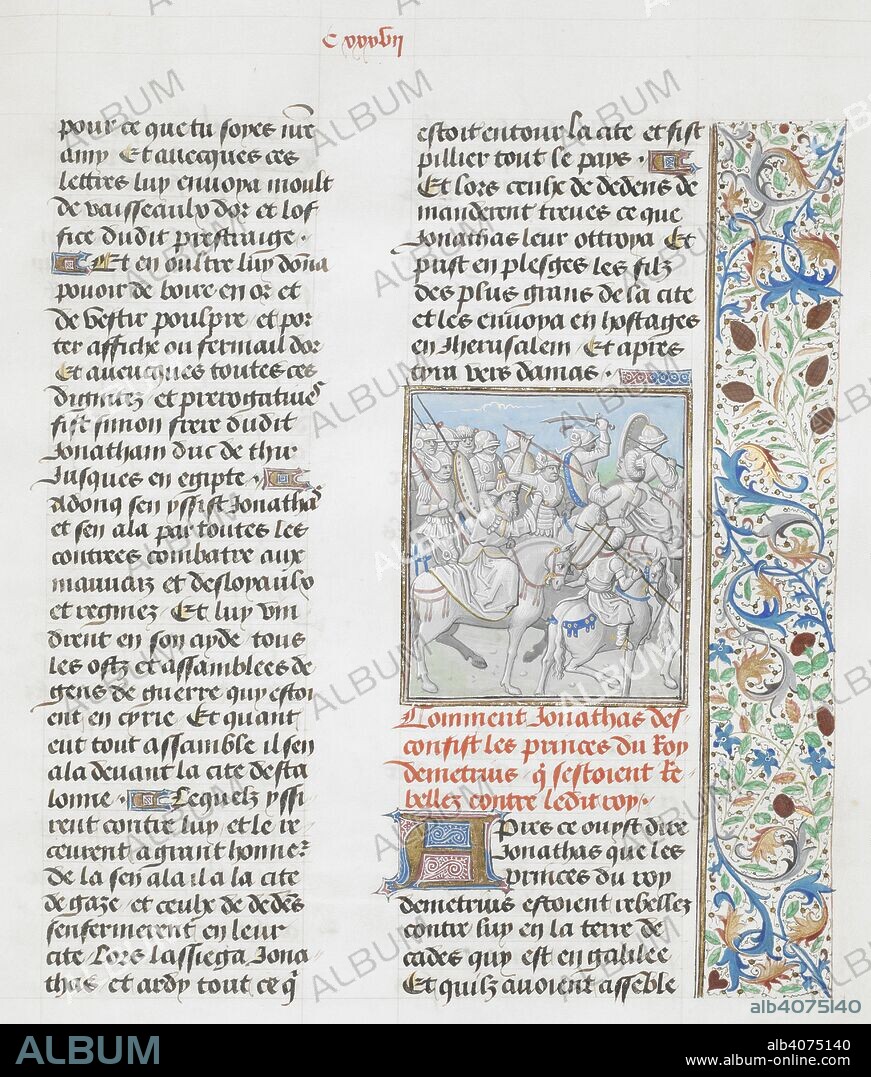 C xxxvii
pour ce que tu soyes nre
amy Et auecques ces
lettres luy enuoya moult
de vaisseaulx dor et lof
fice dudit prestraige .
Et en oultre luy dona
pouoir de boire en or et
de vestir poulpre et por
ter affiche ou fermail dor
Et auecques toutes ces
dignitez et prerogatiues
fist simon frere dudit
Jonatham duc de thir
Jusques en egipte .
Adonq sen yssist Jonathas
et sen ala par toutes les
contrees combatre aux
mauuaiz et desloyaulx
et regniez Et luy vin
drent en son ayde tous
les ostz et assamblees de
gens de guerre quy estoi
ent en cyrie Et quant
eut tout assamble il sen
ala deuant la cite desca
lonne . Lequelz yssi
rent contre luy et le re
ceurent a grant honner
de la sen ala il a la cite
de gaze et ceulx de dedens
senfermerent en leur
cite Lors lassiega Jona
thas et ardy tout ce q
estoit entour la cite et fist
pillier tout le pays .
Et lors ceulx de dedens de
manderent treues ce que
Jonathas leur ottroya Et
prist en plesges les filz
des plus grans de la cite
et les enuoya en hostages
en Jherusalem Et apres
tyra vers damas .
Comment Jonathas des
confist les princes du Roy
demetrius q sestoient Re
bellez contre ledit roy .
Apres ce ouyst dire
Jonathas que les
princes du roy
demetrius estoient rebellez
contre luy en la terre de
cades quy est en galilee
Et quilz auoient asseble
ALBUM
alb4075140
ALBUM
alb4075140
www.album-online.com